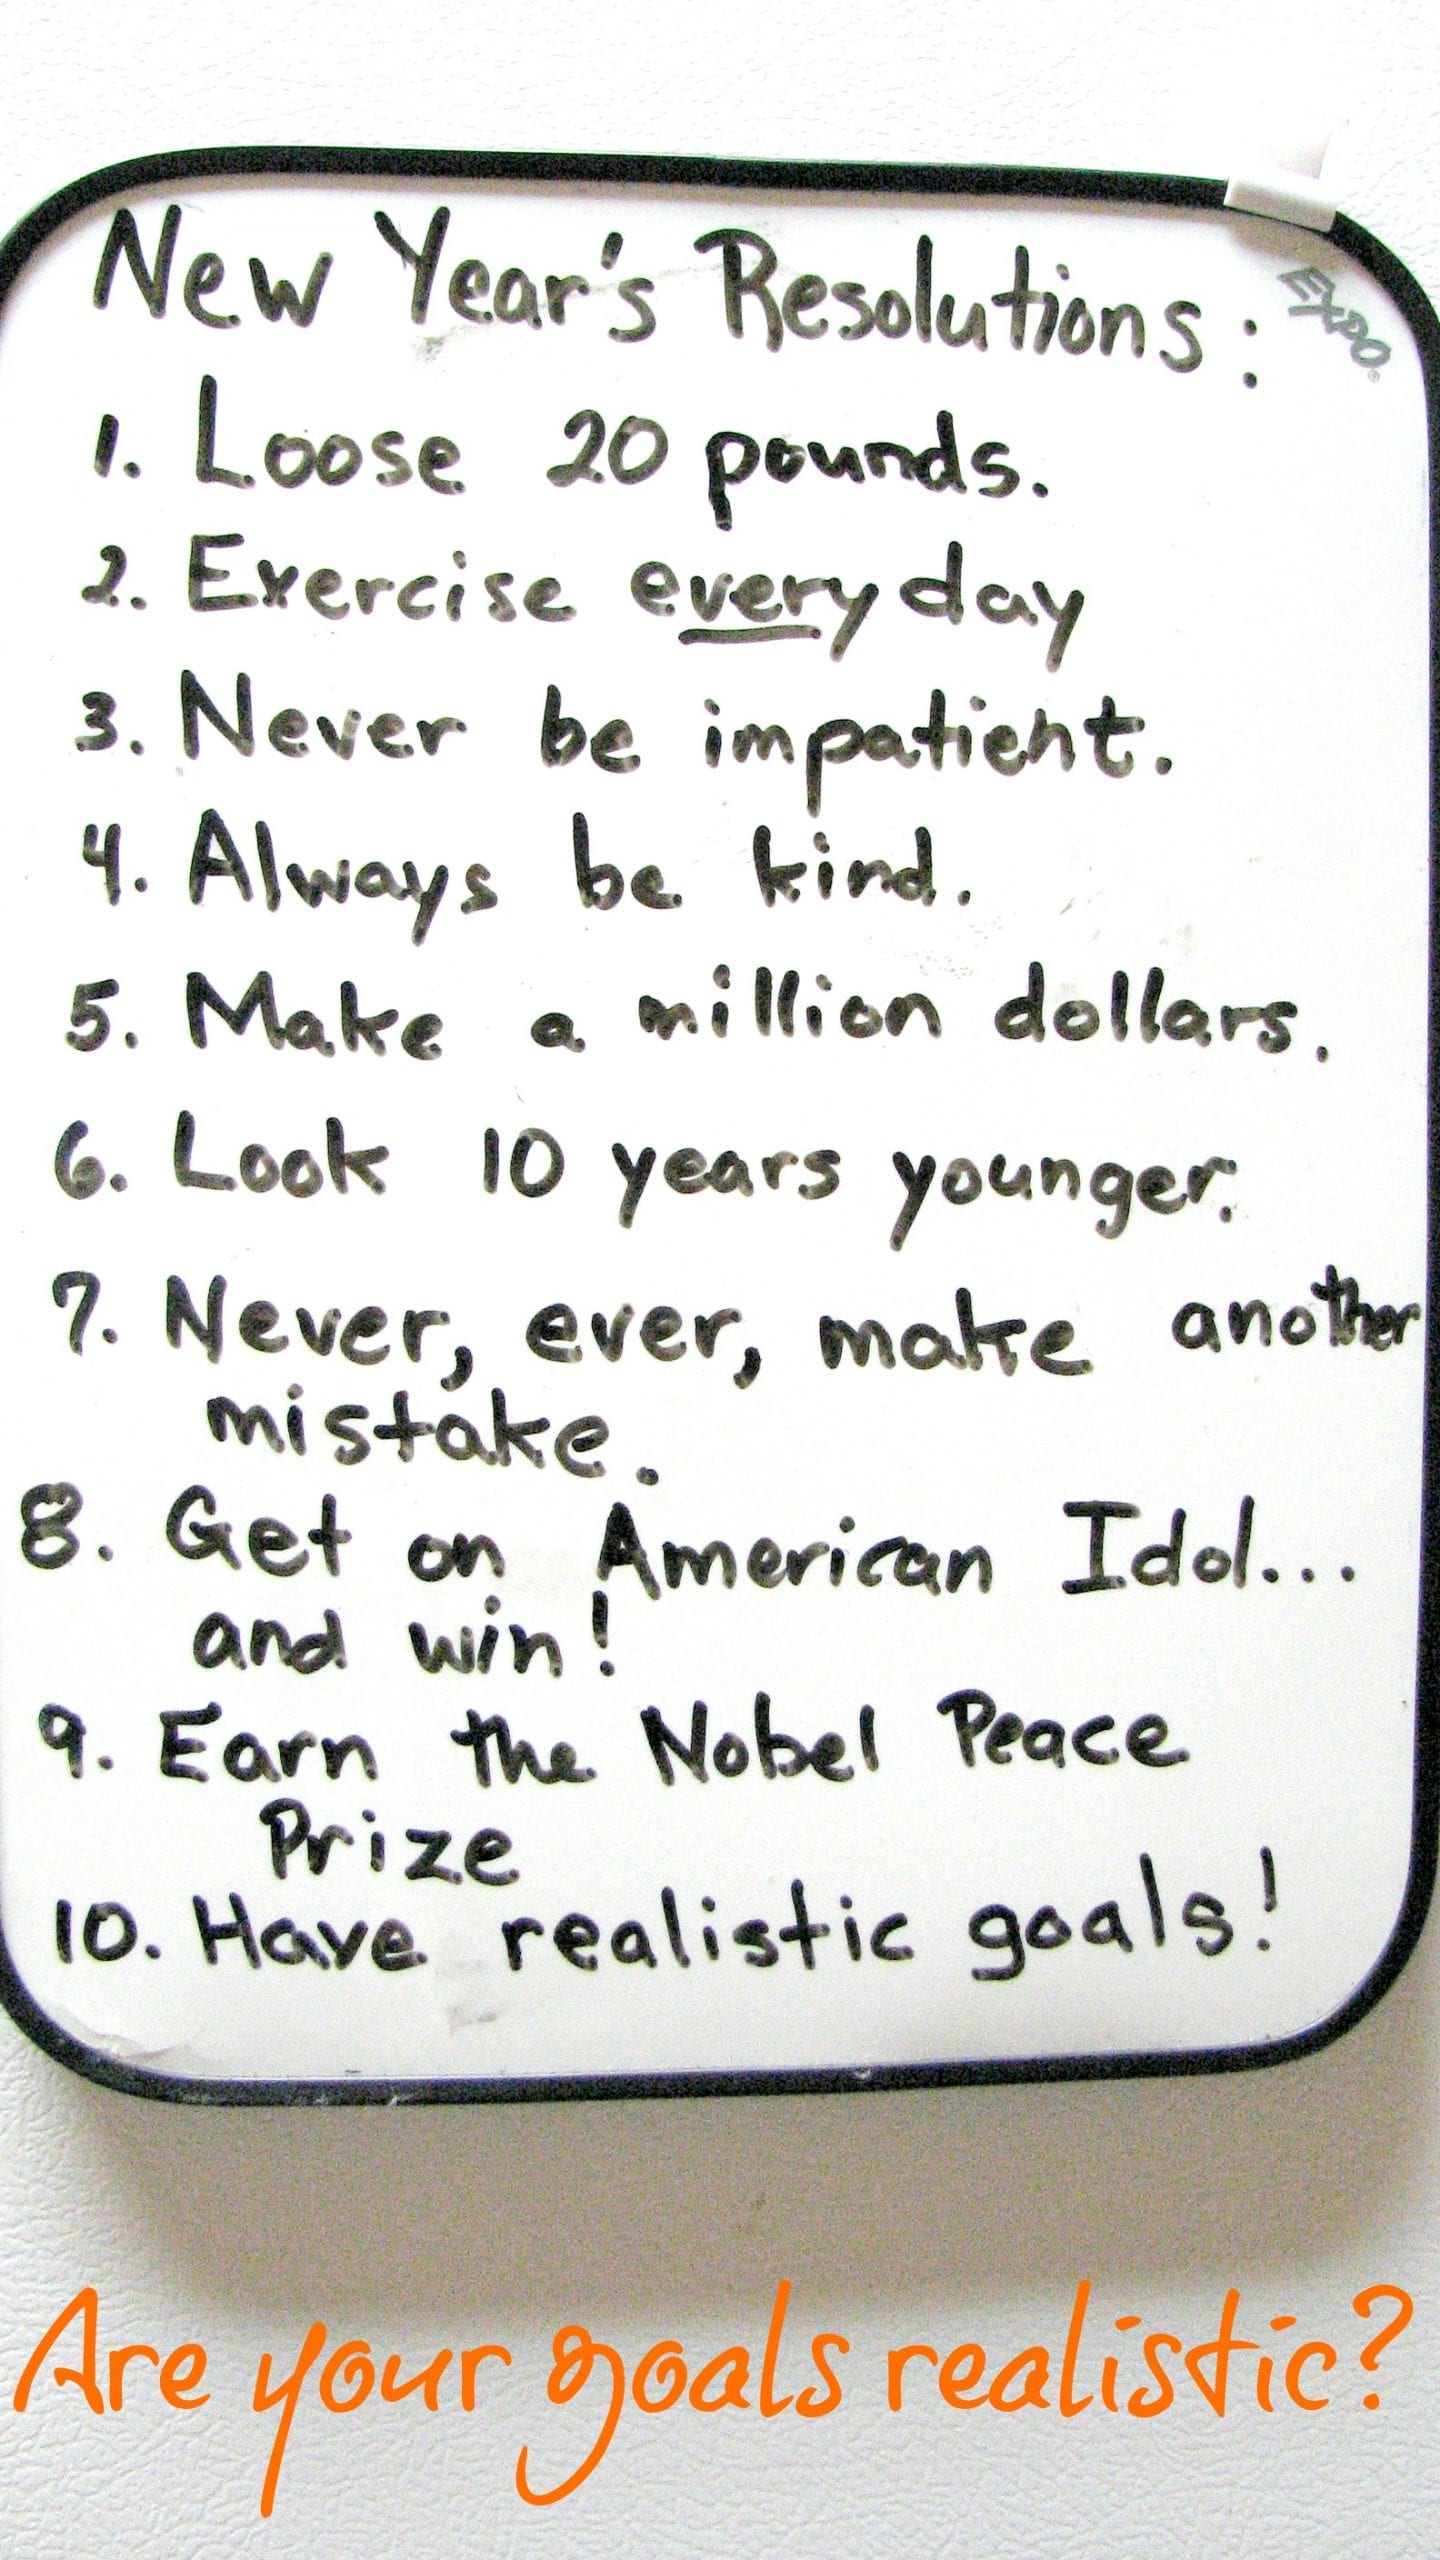 New Year's Resolutions:
EXPO
1. Loose 20 pounds.
2. Exercise every day
3. Never be impatient.
4. Always be kind.
5. Make a million dollars.
6. Look 10 years younger.
7. Never, ever, make another
mistake.
8. Get on American Idol...
and win!
9. Earn the Nobel Peace
Prize
10. Have realistic goals!
Are your goals realistic?